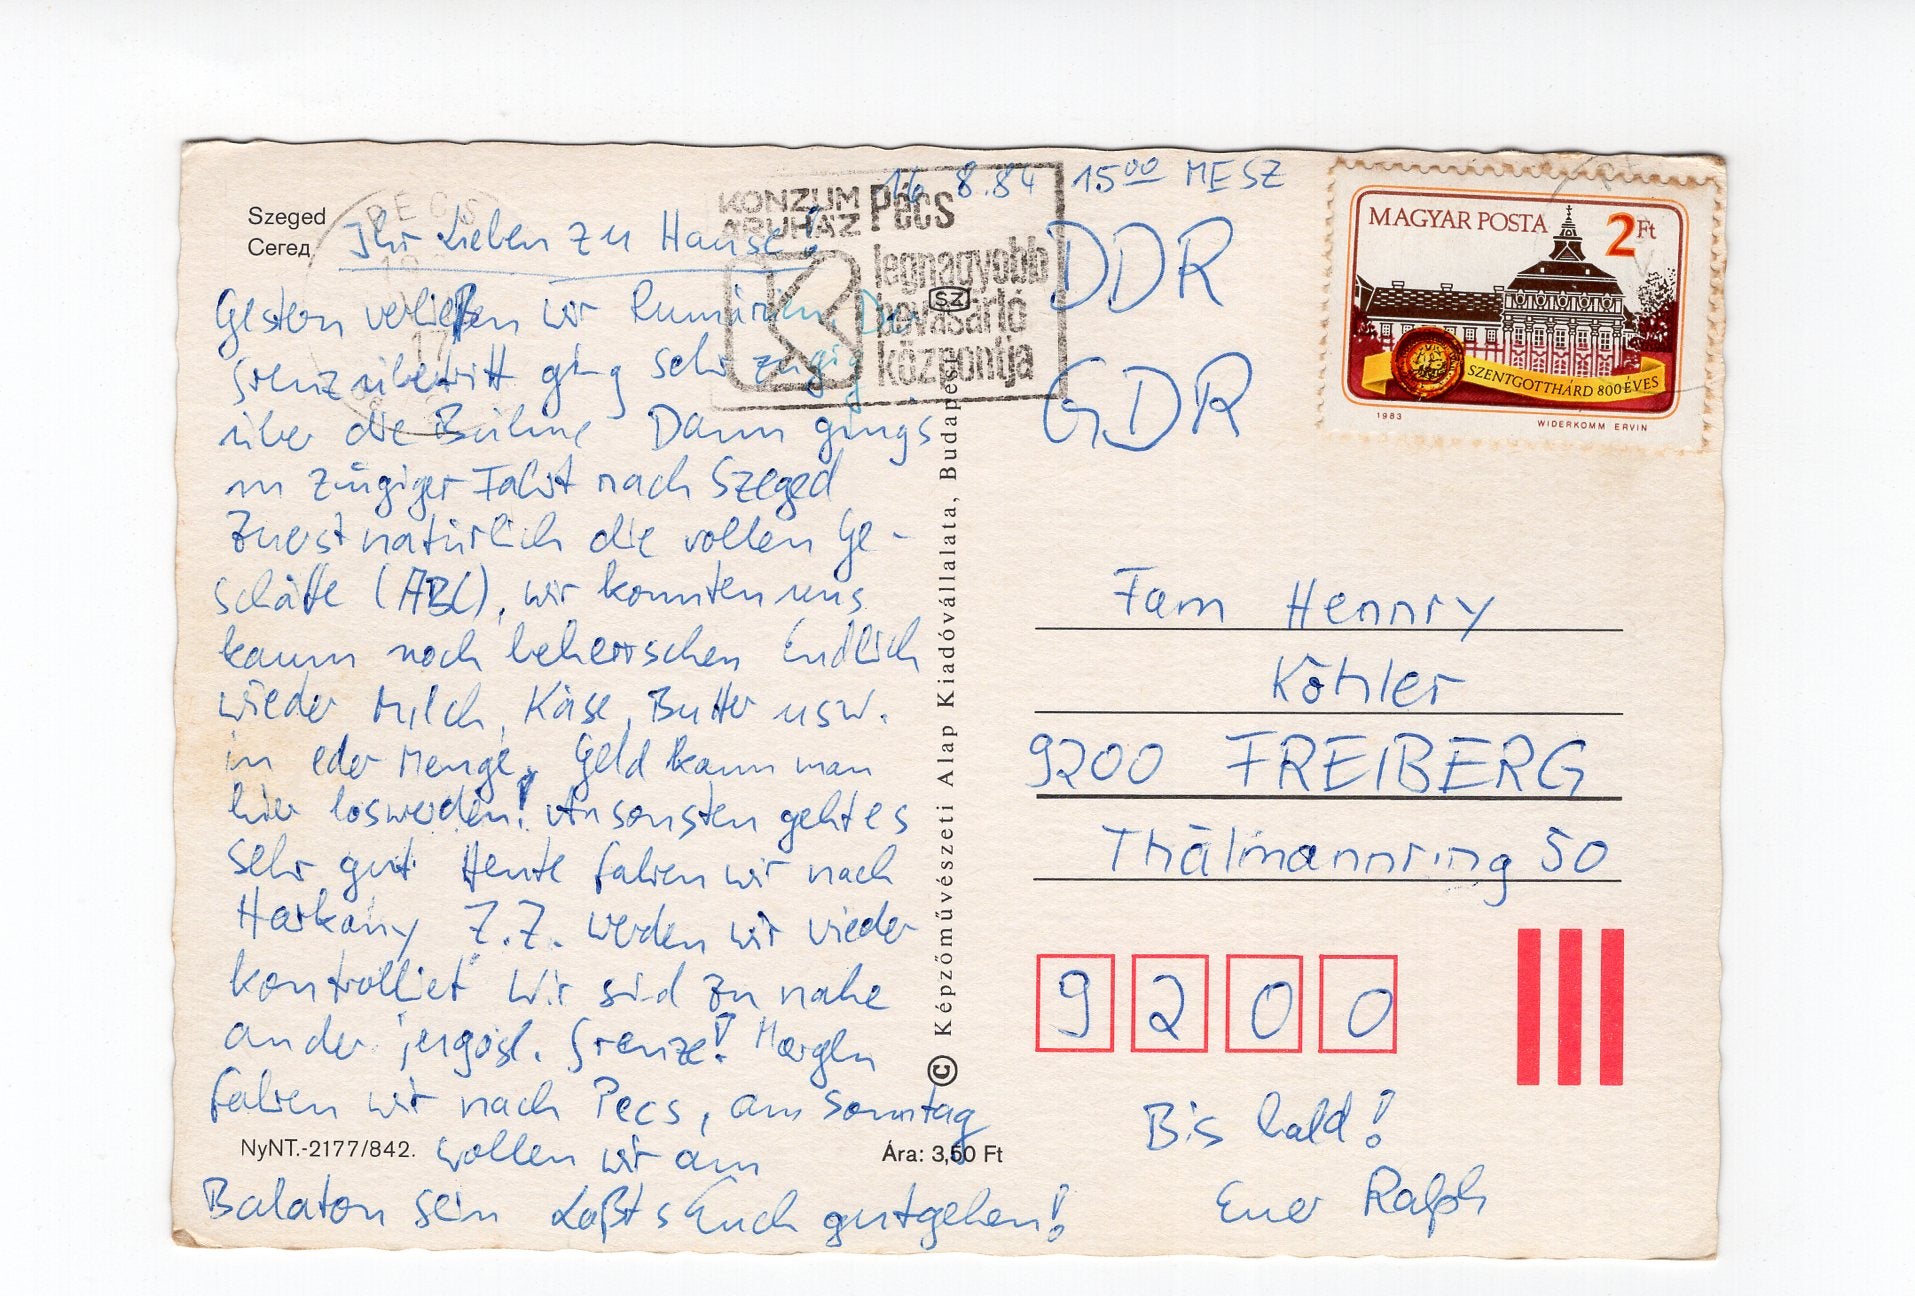 16 8.84 15⁰⁰ MESZ
Szeged
Сегед
Ihr Lieben zu Hause!
Gestern verließen wir Rumänien. Der
Grenzübertritt ging sehr zügig
über die Bühne Dann gings
in zügiger Fahrt nach Szeged
Zuerst natürlich die vollen Ge-
schäfte (ABC), wir konnten uns
kaum noch beherrschen Endlich
wieder Milch, Käse, Butter usw.
in eder Menge, Geld kann man
hier loswerden! Ansonsten geht es
sehr gut Heute fahren wir nach
Harkany Z.Z. werden wir wieder
kontrolliert Wir sind zu nahe
an der jugosl. Grenze! Morgen
fahren wir nach Pecs, am Sonntag
wollen wir am
Balaton sein Laßt s Euch gutgehen!
NyNT.-2177/842.
Ára: 3,50 Ft
© Képzőművészeti Alap Kiadóvállalata, Budapest
SZ
PECS
17
KONZUM
ÁRUHÁZ Pécs
legnagyobb
bevásárló
központja
MAGYAR POSTA 2Ft
SZENTGOTTHÁRD 800 ÉVES
1983 WIDERKOMM ERVIN
DDR
GDR
Fam Hennry
Köhler
9200 FREIBERG
Thälmannring 50
9200
Bis bald!
Euer Ralph